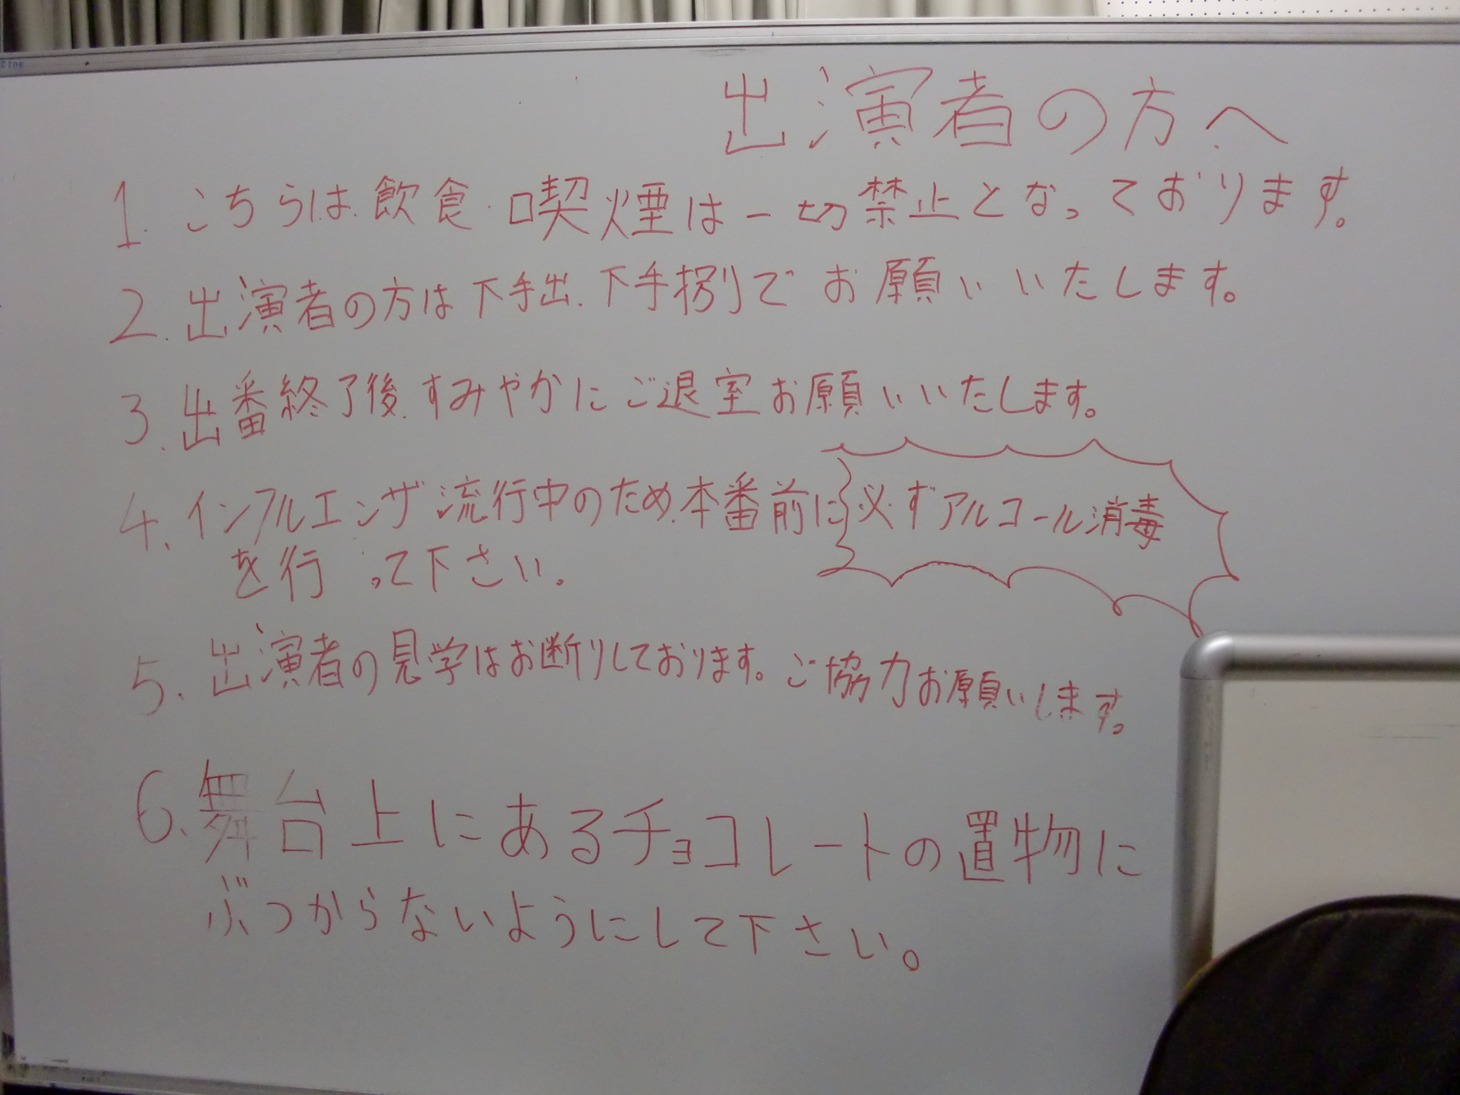 出演者の方へ
1. こちらは飲食・喫煙は一切禁止となっております。
2. 出演者の方は下手出、下手捌りでお願いいたします。
3. 出番終了後、すみやかにご退室お願いいたします。
4. インフルエンザ流行中のため、本番前に必ずアルコール消毒
を行って下さい。
5. 出演者の見学はお断りしております。ご協力お願いします。
6. 舞台上にあるチョコレートの置物に
ぶつからないようにして下さい。